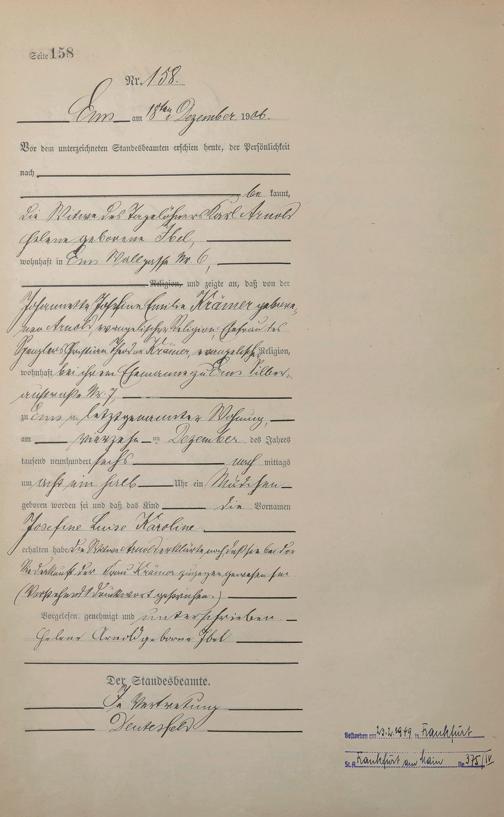 Seite 158
Nr. 158.
Ems am 18ten Dezember 1906.
Vor dem unterzeichneten Standesbeamten erschien heute, der Persönlichkeit
nach
be kannt,
die Witwe des Tagelöhners Karl Arnold
Helene geborene Ibel,
wohnhaft in Ems Wallgasse Nr. 6,
Religion, und zeigte an, daß von der
Johannette Josefine Emilie Krämer gebore-
nen Arnold, evangelischer Religion, Ehefrau des
Spenglers Christian Krämer, evangelischer Religion,
wohnhaft bei ihrem Ehemanne zu Ems Silber-
austraße Nr. 7,
zu Ems in letztgenannter Wohnung,
am vierzehn ten Dezember des Jahres
tausend neunhundert sechs nach mittags
um acht ein halb Uhr ein Mädchen
geboren worden sei und daß das Kind die Vornamen
Josefine Luise Karoline
erhalten habe. Die Witwe Arnold erklärte, daß sie bei der
Niederkunft der Frau Krämer zugegen gewesen sei.
(Vorstehend 1 Druckwort gestrichen.)
Vorgelesen, genehmigt und unterschrieben
Helene Arnold geborne Ibel
Der Standesbeamte.
In Vertretung
Gestorben am 23.2.1949 in Frankfurt
St. A. Frankfurt am Main Nr. 375/IV